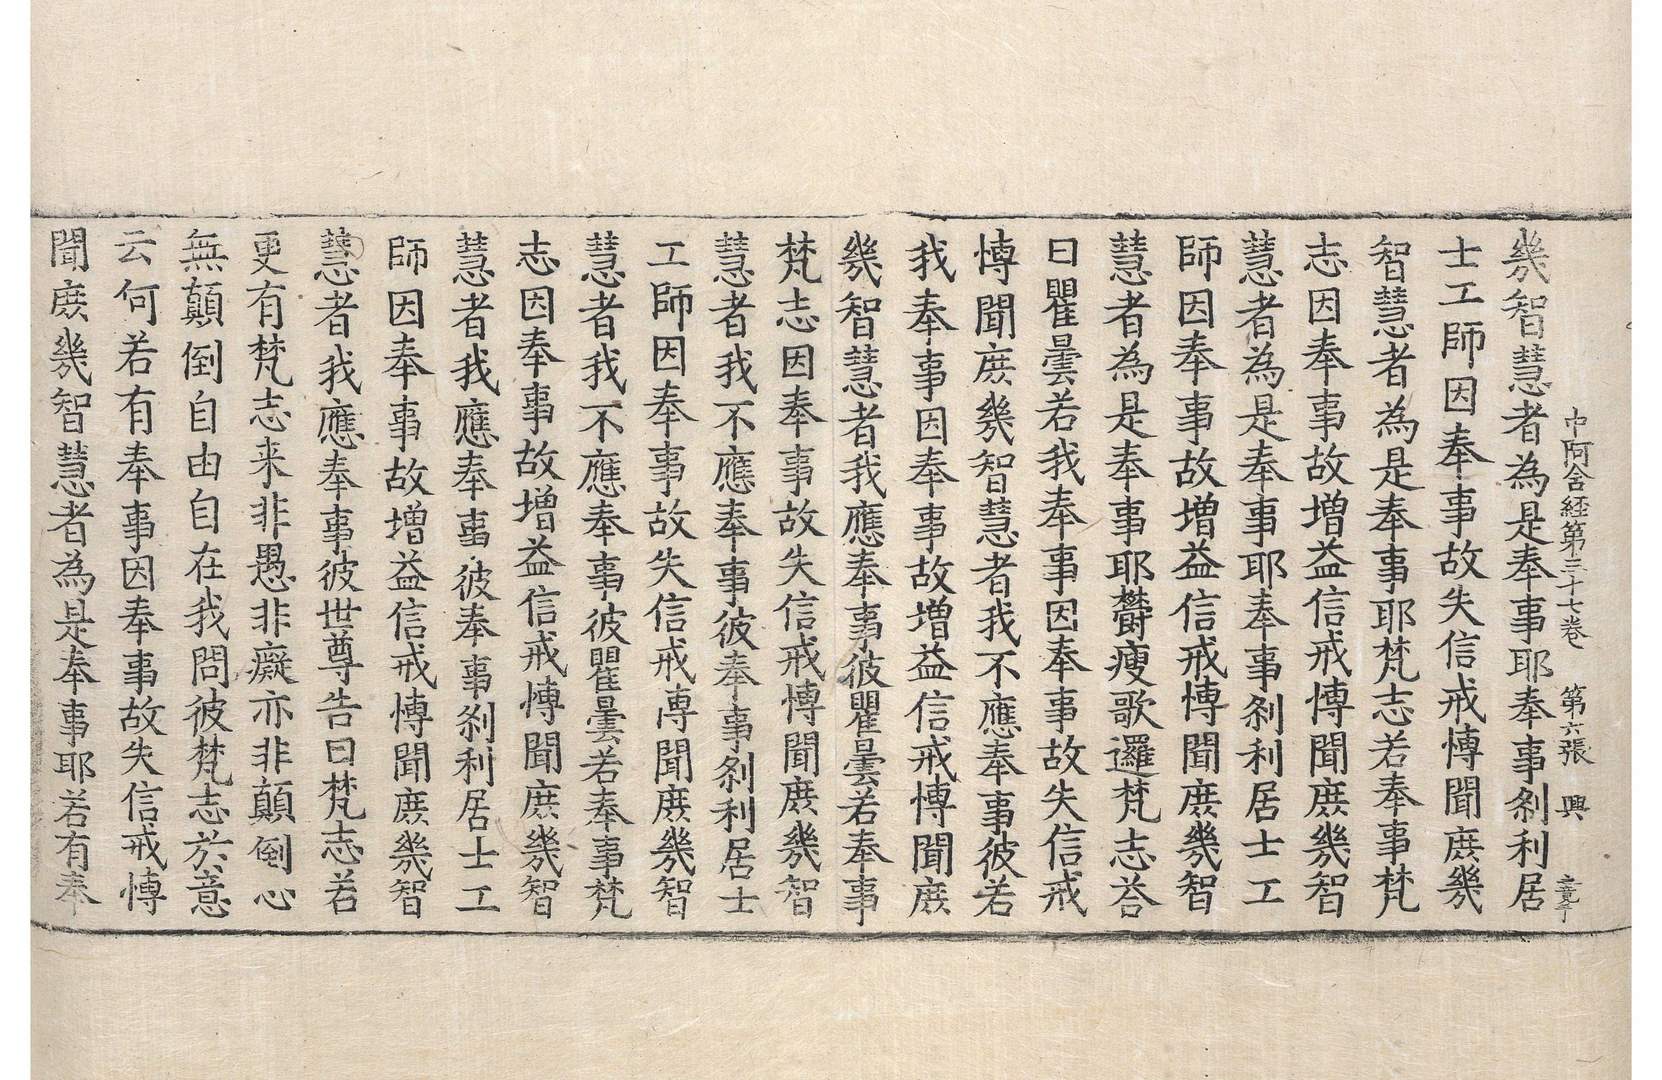 中阿含経第三十七卷　第六張　興
幾智慧者為是奉事耶奉事刹利居
士工師因奉事故失信戒博聞庶幾
智慧者為是奉事耶梵志若奉事梵
志因奉事故增益信戒博聞庶幾智
慧者為是奉事耶奉事刹利居士工
師因奉事故增益信戒博聞庶幾智
慧者為是奉事耶欝瘦歌邏梵志荅
曰瞿曇若我奉事因奉事故失信戒
博聞庶幾智慧者我不應奉事彼若
我奉事因奉事故增益信戒博聞庶
幾智慧者我應奉事彼瞿曇若奉事
梵志因奉事故失信戒博聞庶幾智
慧者我不應奉事彼奉事刹利居士
工師因奉事故失信戒博聞庶幾智
慧者我不應奉事彼瞿曇若奉事梵
志因奉事故增益信戒博聞庶幾智
慧者我應奉事彼奉事刹利居士工
師因奉事故增益信戒博聞庶幾智
慧者我應奉事彼世尊告曰梵志若
更有梵志来非愚非癡亦非顛倒心
無顛倒自由自在我問彼梵志於意
云何若有奉事因奉事故失信戒博
聞庶幾智慧者為是奉事耶若有奉